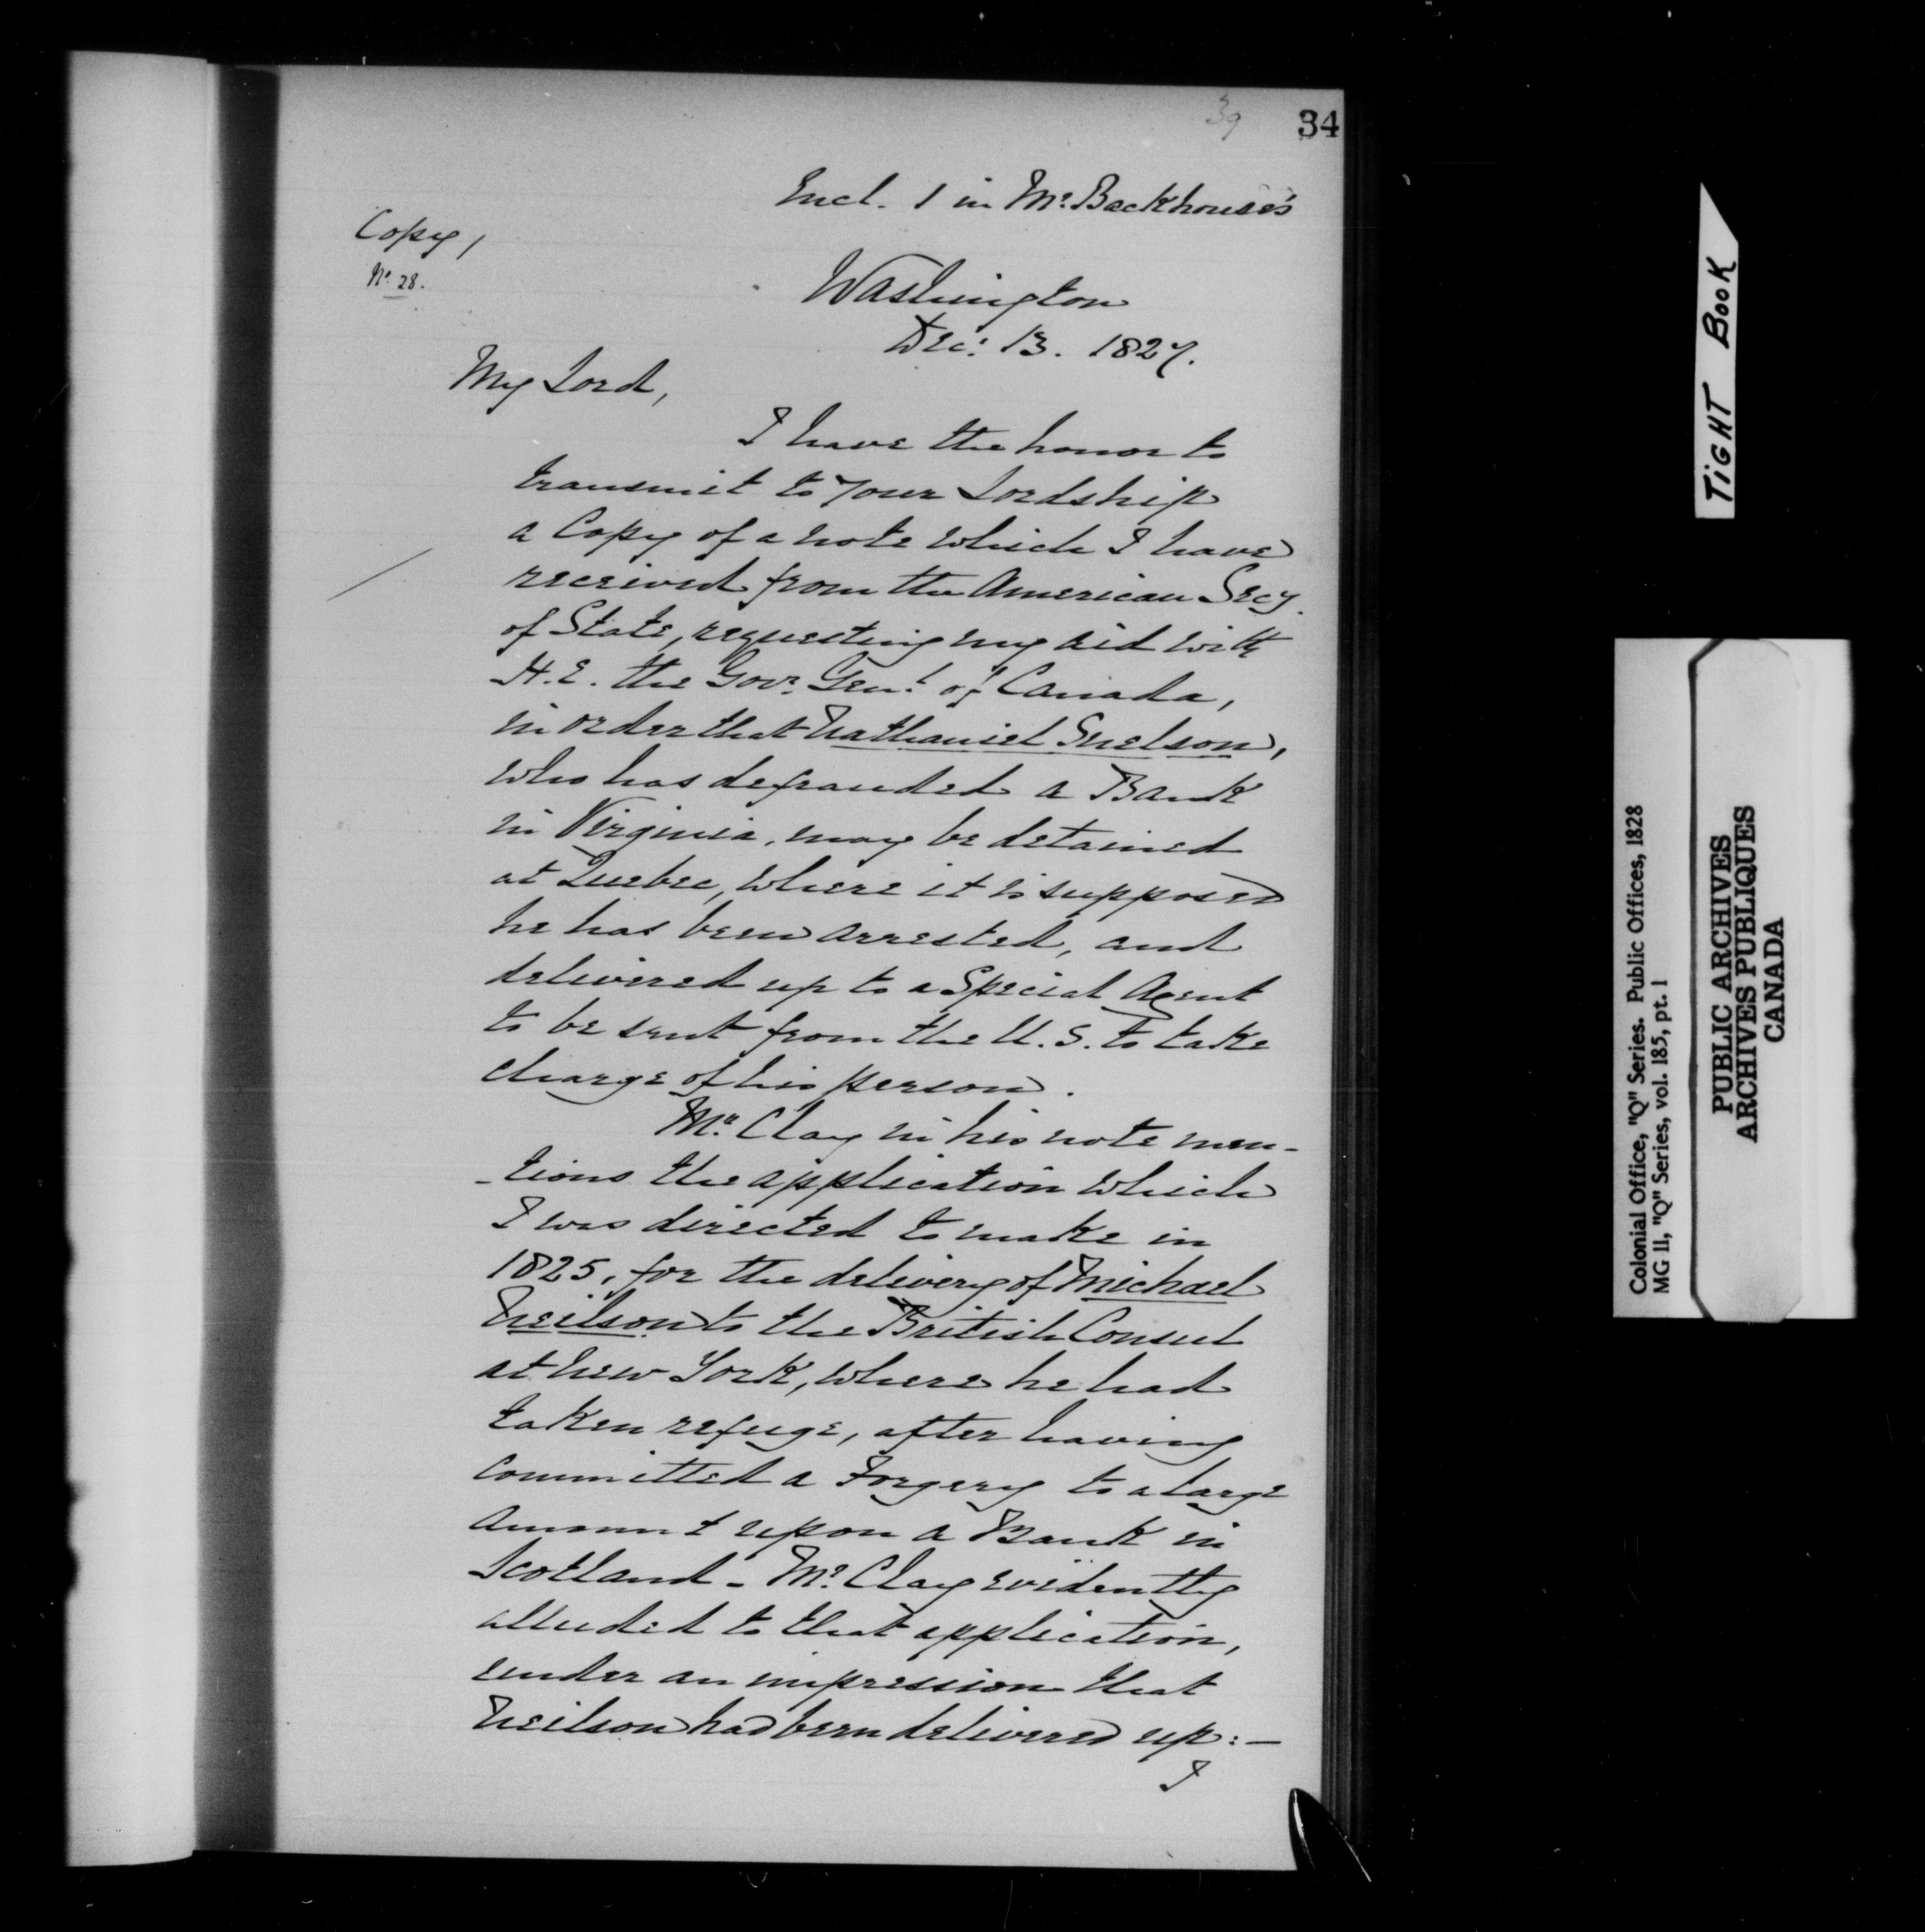 39
34
Encl. 1 in Mr. Backhouse's
Copy,
No. 28.
Washington
Decr. 13. 1827.
My Lord,
I have the honor to
transmit to Your Lordship
a Copy of a note which I have
received from the American Secy.
of State, requesting my aid with
H.E. the Govr. Genl. of Canada,
in order that Nathaniel Snelson,
who has defrauded a Bank
in Virginia, may be detained
at Quebec, where it is supposed
he has been arrested, and
delivered up to a Special Agent
to be sent from the U.S. to take
charge of his person.
Mr. Clay in his note men-
-tions the application which
I was directed to make in
1825, for the delivery of Michael
Neilson to the British Consul
at New York, where he had
taken refuge, after having
committed a Forgery to a large
amount upon a Bank in
Scotland - Mr. Clay evidently
alluded to that application,
under an impression that
Neilson had been delivered up:—
I
TIGHT BOOK
Colonial Office, "Q" Series. Public Offices, 1828
MG 11, "Q" Series, vol. 185, pt. 1
PUBLIC ARCHIVES
ARCHIVES PUBLIQUES
CANADA